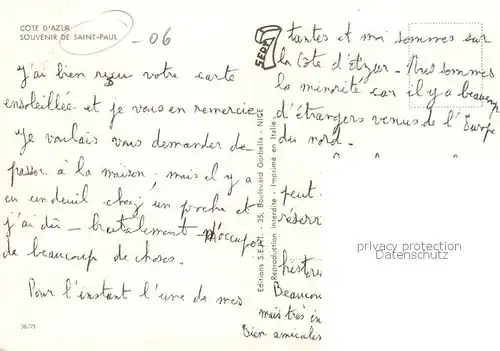 COTE D'AZUR
SOUVENIR DE SAINT-PAUL
- 06
J'ai bien reçu votre carte
ensoleillée et je vous en remercie
Je voulais vous demander de
passer à la maison, mais il y a
eu un deuil chez un proche et
j'ai dû - brutalement - m'occuper
de beaucoup de choses.
Pour l'instant l'une de mes
36/03
Editions S.E.P.T. - 35, Boulevard Gorbella - NICE
Reproduction interdite - Imprimé en Italie
SEPT
tantes et moi sommes sur
la Côte d'Azur - Nous sommes
la minorité car il y a beaucoup
d'étrangers venus de l'Europe
du nord.
peut
réserv
privacy protection
Datenschutz
Beaucou
mais très in
Bien amicales